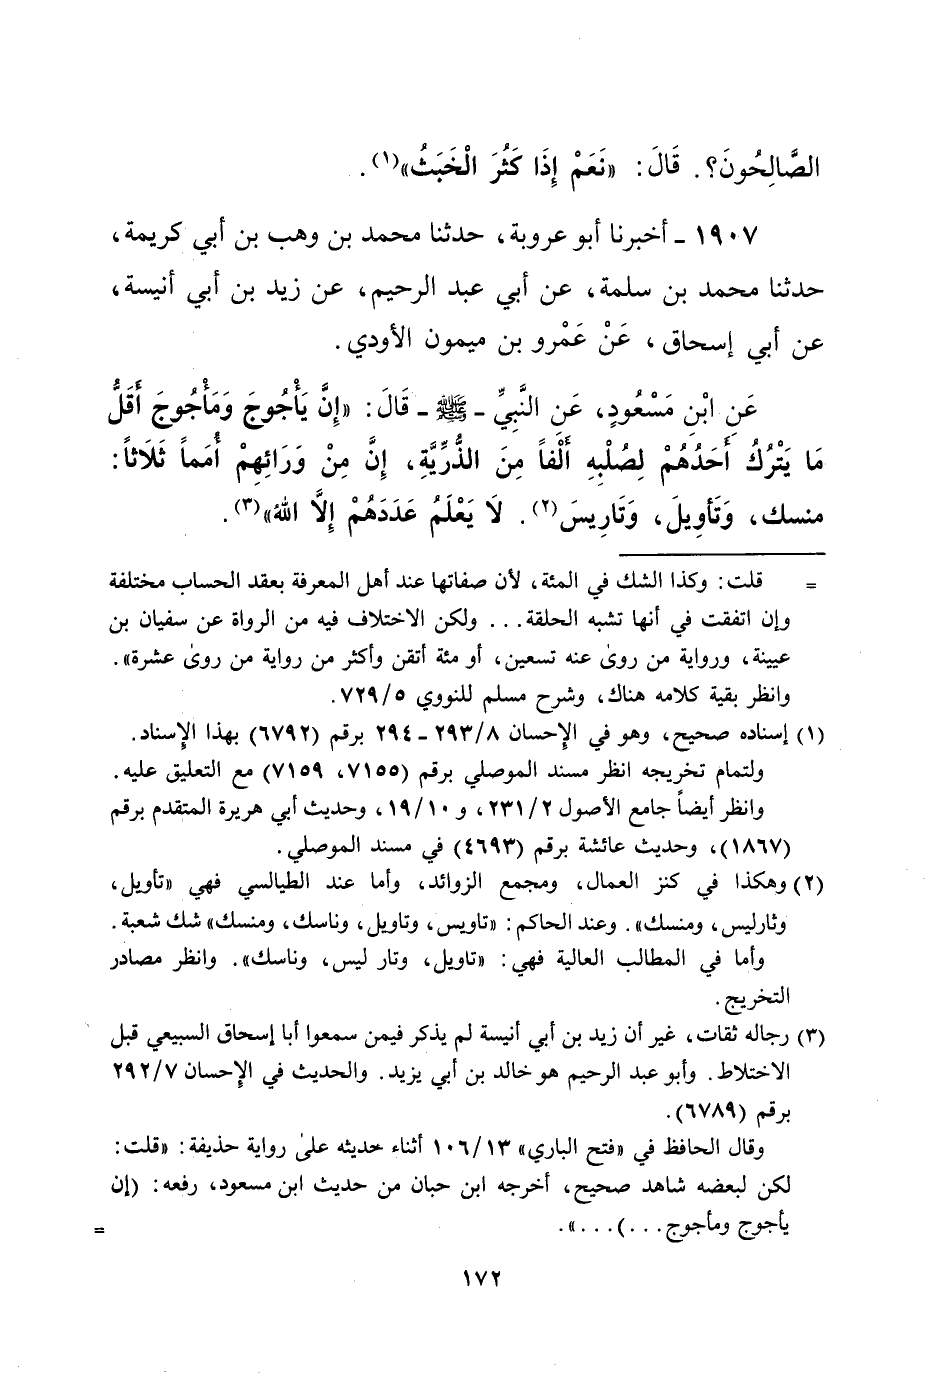 الصَّالِحُونَ؟. قَالَ: «نَعَمْ إِذَا كَثُرَ الْخَبَثُ»(١).
١٩٠٧ - أخبرنا أبو عروبة، حدثنا محمد بن وهب بن أبي كريمة،
حدثنا محمد بن سلمة، عن أبي عبد الرحيم، عن زيد بن أبي أنيسة،
عن أبي إسحاق، عَنْ عَمْرو بن ميمون الأودي.
عَنِ ابْنِ مَسْعُودٍ، عَنِ النَّبِيِّ - ﷺ - قَالَ: «إِنَّ يَأْجُوجَ وَمَأْجُوجَ أَقَلُّ
مَا يَتْرُكُ أَحَدُهُمْ لِصُلْبِهِ أَلْفاً مِنَ الذُّرِّيَّةِ، إِنَّ مِنْ وَرَائِهِمْ أُمَماً ثَلَاثاً:
منسك، وَتَأوِيلَ، وَتَارِيسَ(٢). لَا يَعْلَمُ عَدَدَهُمْ إِلَّا اللهُ»(٣).
= قلت: وكذا الشك في المئة، لأن صفاتها عند أهل المعرفة بعقد الحساب مختلفة
وإن اتفقت في أنها تشبه الحلقة... ولكن الاختلاف فيه من الرواة عن سفيان بن
عيينة، ورواية من روىٰ عنه تسعين، أو مئة أتقن وأكثر من رواية من روىٰ عشرة».
وانظر بقية كلامه هناك، وشرح مسلم للنووي ٧٢٩/٥.
(١) إسناده صحيح، وهو في الإحسان ٢٩٣/٨ - ٢٩٤ برقم (٦٧٩٢) بهذا الإسناد.
ولتمام تخريجه انظر مسند الموصلي برقم (٧١٥٥، ٧١٥٩) مع التعليق عليه.
وانظر أيضاً جامع الأصول ٢٣١/٢، و ١٩/١٠، وحديث أبي هريرة المتقدم برقم
(١٨٦٧)، وحديث عائشة برقم (٤٦٩٣) في مسند الموصلي.
(٢) وهكذا في كنز العمال، ومجمع الزوائد، وأما عند الطيالسي فهي «تأويل،
وثارليس، ومنسك». وعند الحاكم: «تاويس، وتاويل، وناسك، ومنسك» شك شعبة.
وأما في المطالب العالية فهي: «تاويل، وتار ليس، وناسك». وانظر مصادر
التخريج.
(٣) رجاله ثقات، غير أن زيد بن أبي أنيسة لم يذكر فيمن سمعوا أبا إسحاق السبيعي قبل
الاختلاط. وأبو عبد الرحيم هو خالد بن أبي يزيد. والحديث في الإحسان ٢٩٢/٧
برقم (٦٧٨٩).
وقال الحافظ في «فتح الباري» ١٠٦/١٣ أثناء حديثه علىٰ رواية حذيفة: «قلت:
لكن لبعضه شاهد صحيح، أخرجه ابن حبان من حديث ابن مسعود، رفعه: (إن
يأجوج ومأجوج...)...». =
١٧٢